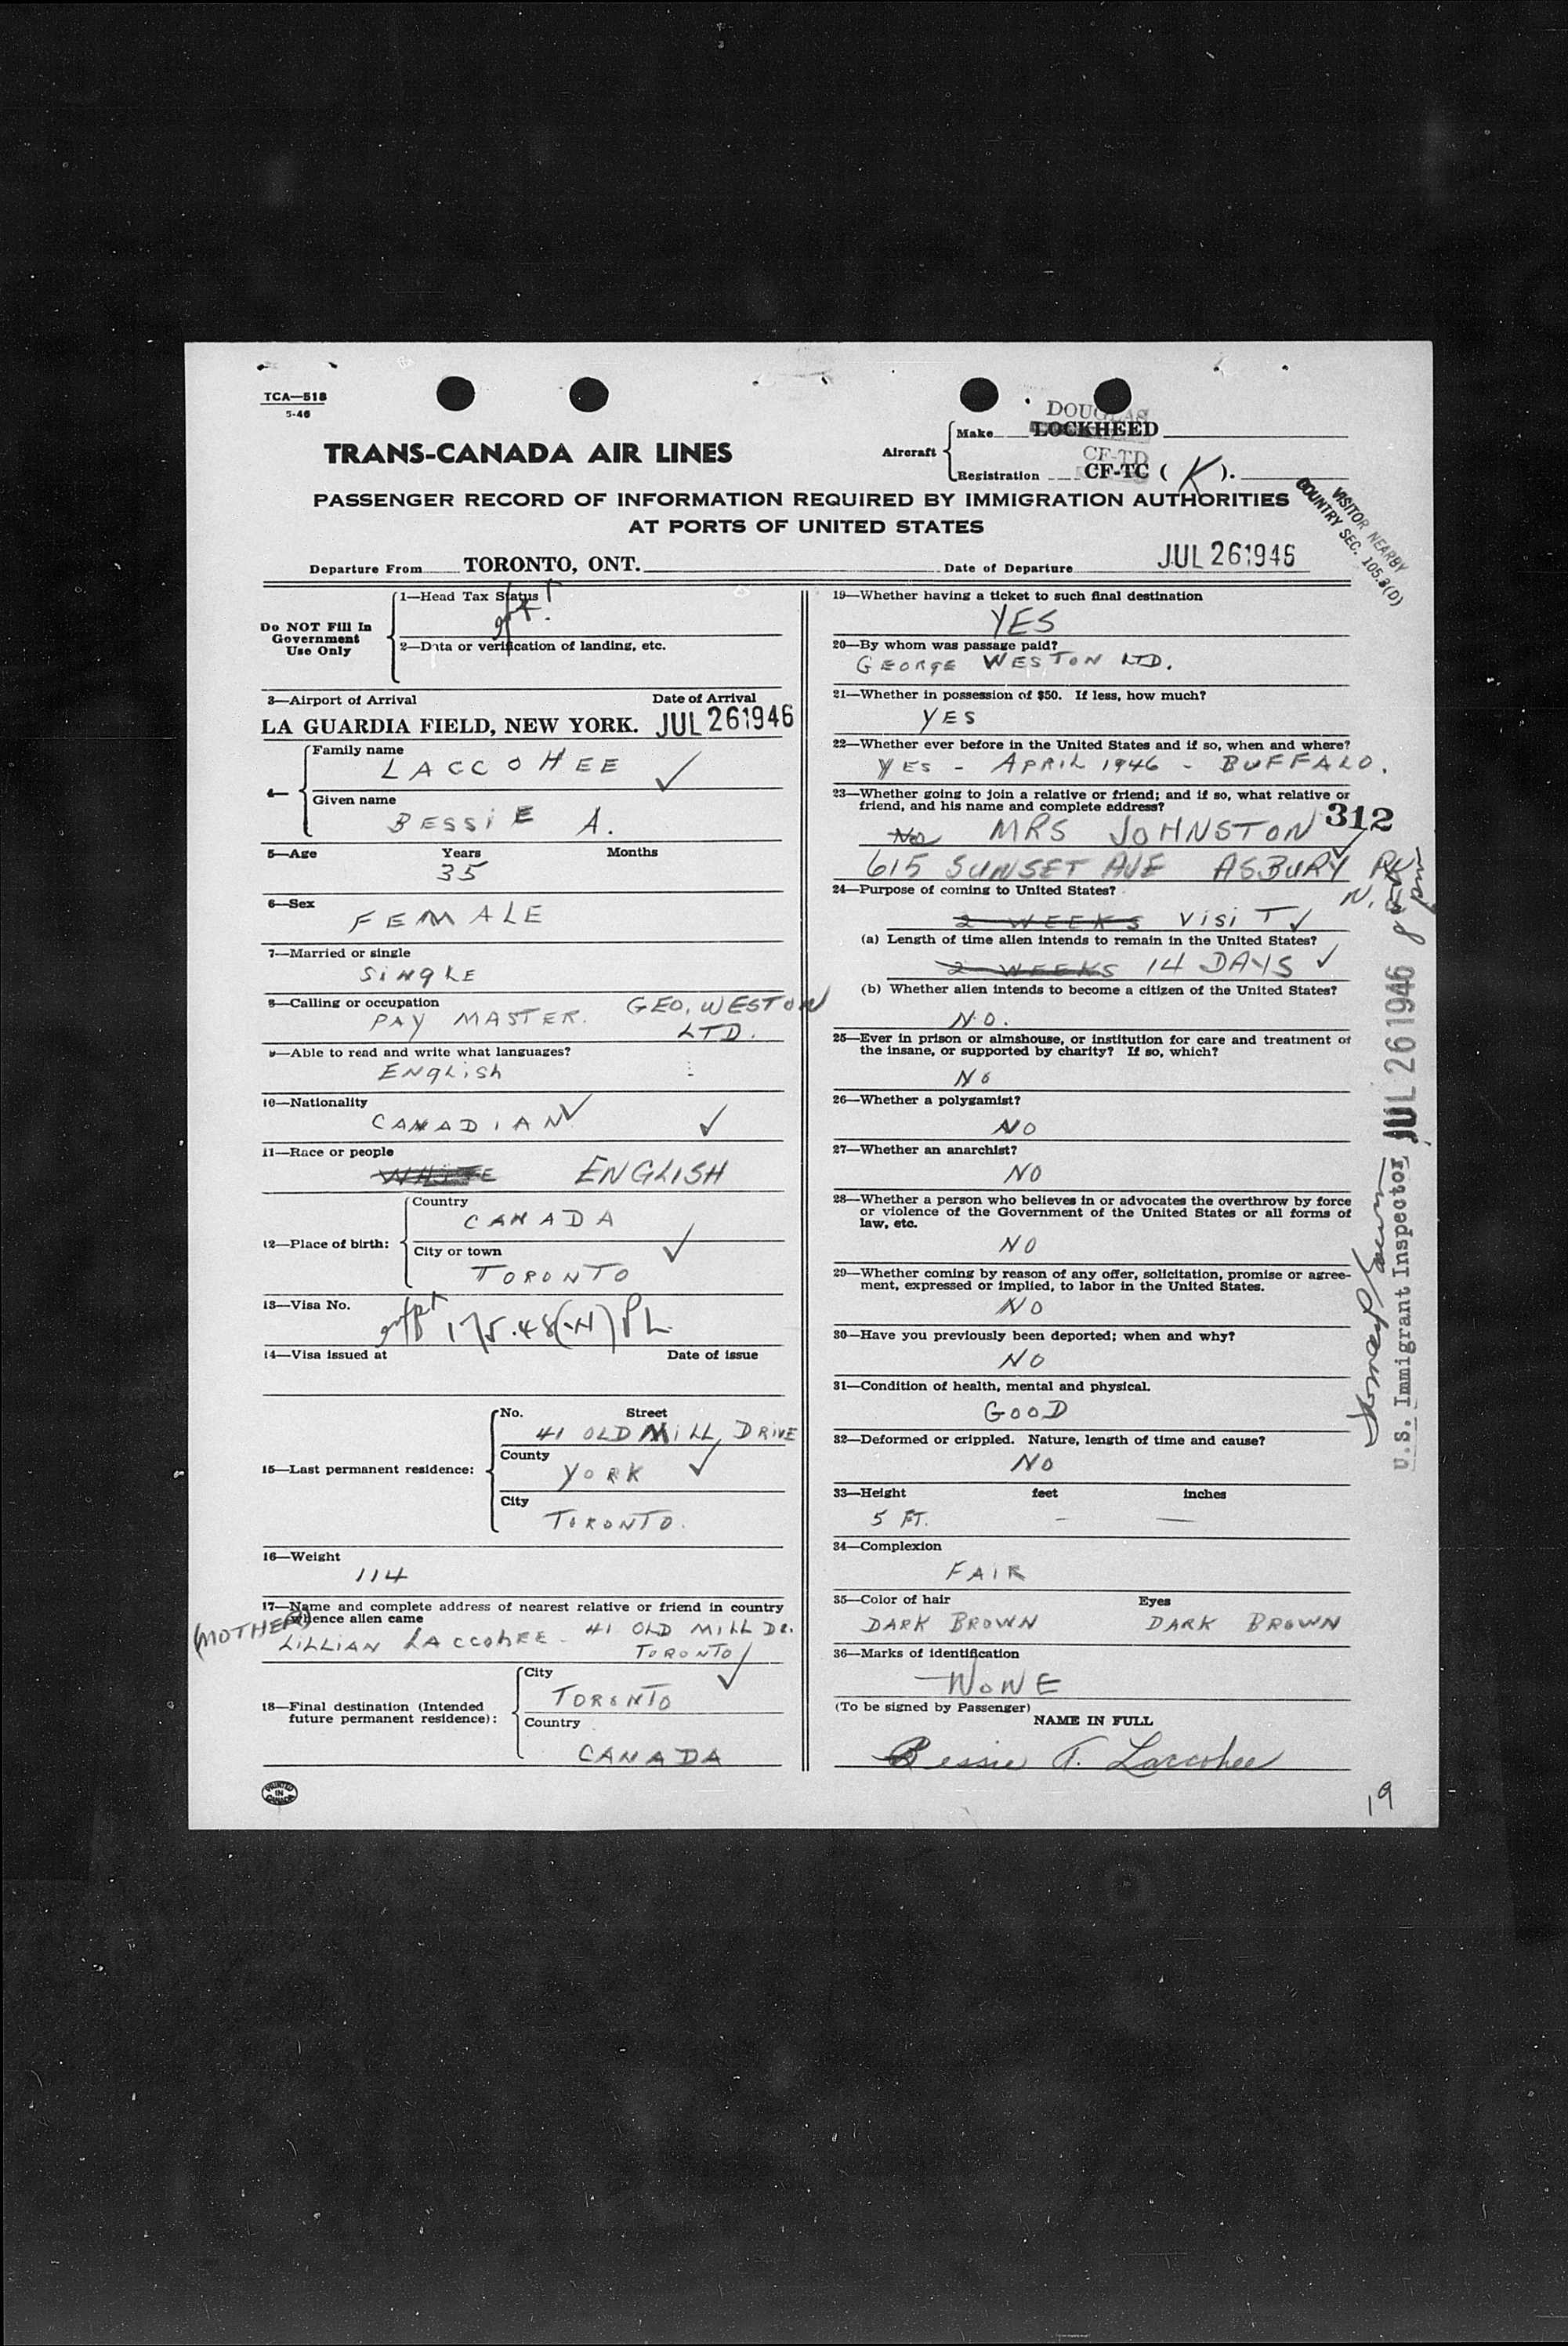 TCA—518
5-46
TRANS-CANADA AIR LINES
Aircraft
Make DOUGLAS
LOCKHEED
CF-TD
Registration CF-TC ( K ).
PASSENGER RECORD OF INFORMATION REQUIRED BY IMMIGRATION AUTHORITIES
AT PORTS OF UNITED STATES
VISITOR NEARBY
COUNTRY SEC. 105.3(D)
Departure From TORONTO, ONT. Date of Departure JUL 26 1946
Do NOT Fill In
Government
Use Only
1—Head Tax Status
2—Data or verification of landing, etc.
3—Airport of Arrival Date of Arrival
LA GUARDIA FIELD, NEW YORK. JUL 26 1946
4—
Family name
LACCOHEE
Given name
BESSIE A.
5—Age Years Months
35
6—Sex
FEMALE
7—Married or single
SINGLE
8—Calling or occupation GEO. WESTON
PAY MASTER. LTD.
9—Able to read and write what languages?
English
10—Nationality
CANADIAN
11—Race or people
WHITE ENGLISH
12—Place of birth:
Country
CANADA
City or town
TORONTO
13—Visa No.
175.48
14—Visa issued at Date of issue
15—Last permanent residence:
No. Street
41 OLD MILL DRIVE
County
YORK
City
TORONTO.
16—Weight
114
17—Name and complete address of nearest relative or friend in country
whence alien came
(MOTHER) LILLIAN LACCOHEE - 41 OLD MILL DR.
TORONTO
18—Final destination (Intended
future permanent residence):
City
TORONTO
Country
CANADA
PRINTED
IN
CANADA
19—Whether having a ticket to such final destination
YES
20—By whom was passage paid?
GEORGE WESTON LTD.
21—Whether in possession of $50. If less, how much?
YES
22—Whether ever before in the United States and if so, when and where?
YES - APRIL 1946 - BUFFALO.
23—Whether going to join a relative or friend; and if so, what relative or
friend, and his name and complete address?
312
No MRS JOHNSTON
615 SUNSET AVE ASBURY PK
24—Purpose of coming to United States?
2 WEEKS VISIT
(a) Length of time alien intends to remain in the United States?
2 WEEKS 14 DAYS
(b) Whether alien intends to become a citizen of the United States?
NO.
25—Ever in prison or almshouse, or institution for care and treatment of
the insane, or supported by charity? If so, which?
No
26—Whether a polygamist?
NO
27—Whether an anarchist?
NO
28—Whether a person who believes in or advocates the overthrow by force
or violence of the Government of the United States or all forms of
law, etc.
NO
29—Whether coming by reason of any offer, solicitation, promise or agree-
ment, expressed or implied, to labor in the United States.
NO
30—Have you previously been deported; when and why?
NO
31—Condition of health, mental and physical.
GOOD
32—Deformed or crippled. Nature, length of time and cause?
NO
33—Height feet inches
5 FT. — —
34—Complexion
FAIR
35—Color of hair Eyes
DARK BROWN DARK BROWN
36—Marks of identification
NONE
(To be signed by Passenger)
NAME IN FULL
Bessie A. Laccohee
JUL 26 1946 8 pm
U.S. Immigrant Inspector
19